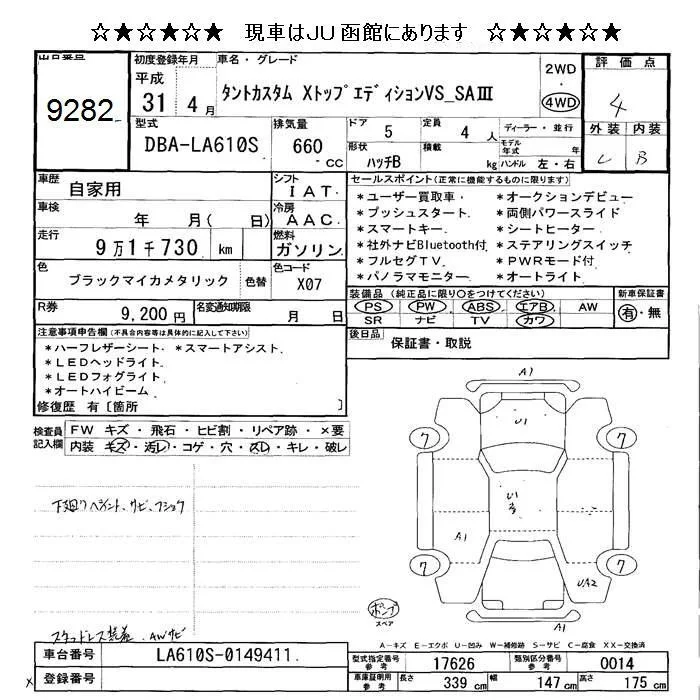 ☆★☆★☆★ 現車はJU函館にあります ☆★☆★☆★
出品番号
9282
初度登録年月
平成
31年 4月
車名・グレード
タントカスタム Xトップエディション VS_SAⅢ
2WD
・
4WD
評価点
4
外装 内装
C B
型式
DBA-LA610S
排気量
660
cc
ドア
5
定員
4 人
形状
ハッチB
積載
kg
ディーラー・並行
モデル年式 年
ハンドル 左・右
車歴
自家用
シフト
I AT.
車検
年 月( 日)
冷房
A AC.
走行
9万1千730 km
燃料
ガソリン
色
ブラックマイカメタリック
色替
色コード
X07
R券
9,200円
名変通知期限
月 日
セールスポイント(正常に機能するものに限ります)
*ユーザー買取車・ *オークションデビュー
*プッシュスタート・ *両側パワースライド
*スマートキー・ *シートヒーター・
*社外ナビBluetooth付 *ステアリングスイッチ
*フルセグTV・ *PWRモード付・
*パノラマモニター・ *オートライト・
装備品(純正品に限り○をつけてください)
PS PW ABS エアB AW
SR ナビ TV カワ
新車保証書
有・無
後日品
保証書・取説
注意事項申告欄(不具合内容等は具体的に記入して下さい)
*ハーフレザーシート・ *スマートアシスト・
*LEDヘッドライト・
*LEDフォグライト・
*オートハイビーム・
修復歴 有〔箇所 〕
検査員記入欄
FW キズ・飛石・ヒビ割・リペア跡・×要
内装 キズ・汚レ・コゲ・穴・スレ・キレ・破レ
下廻りペイント、サビ、フショク
スタッドレス装着、AWサビ
A1
U1
7
7
U1
A1
7
7
UA2
A1
ポンプ
スペア
A-キズ E-エクボ U-凹み W-補修跡 S-サビ C-腐食 XX-交換済
車台番号
LA610S-0149411.
登録番号
型式指定番号
参考
17626
類別区分番号
参考
0014
車庫証明用
参考
長さ
339 cm
幅
147 cm
高さ
175 cm